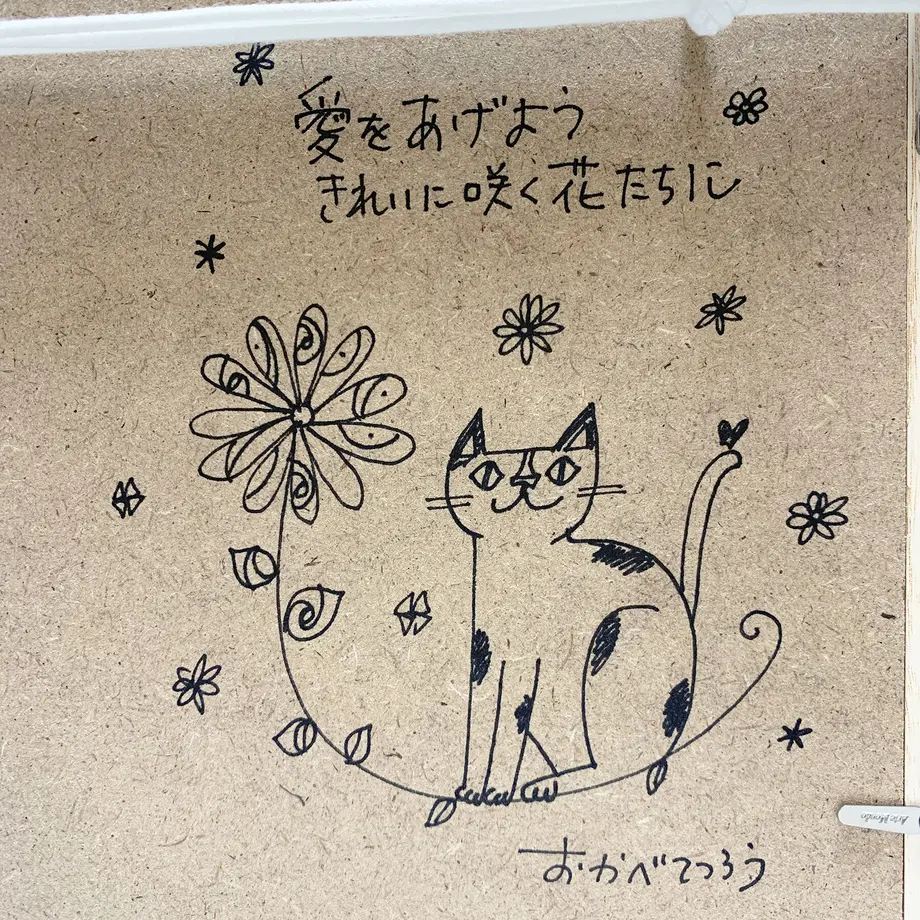 愛をあげよう
きれいに咲く花たちに
おかべてつろう